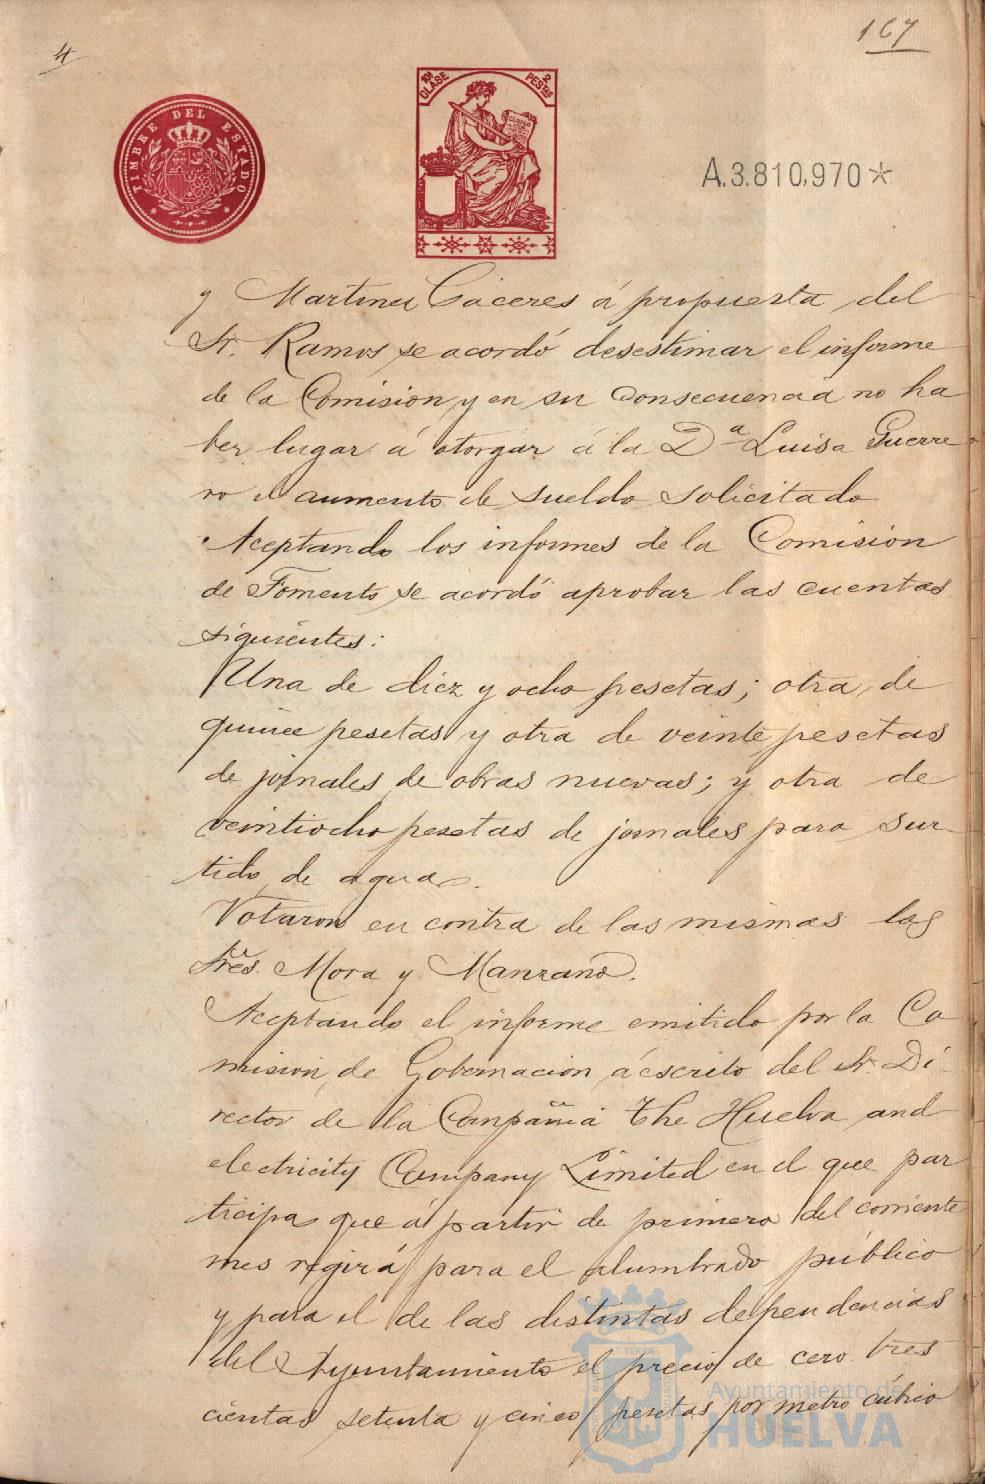 4
167
TIMBRE DEL ESTADO
10ª CLASE
2 PESTAS
A.3.810,970*
y Martinez Cáceres á propuesta del
Sr. Ramos se acordó desestimar el informe
de la Comision y en su consecuencia no ha
ber lugar á otorgar á la Dª Luisa Guerre
ro el aumento de sueldo solicitado
Aceptando los informes de la Comision
de Fomento se acordó aprobar las cuentas
siguientes:
Una de diez y ocho pesetas; otra de
quince pesetas y otra de veinte pesetas
de jornales de obras nuevas; y otra de
veintiocho pesetas de jornales para sur
tido de agua.
Votaron en contra de las mismas los
Sres. Mora y Manzano.
Aceptando el informe emitido por la Co
mision de Gobernacion á escrito del Sr. Di
rector de la Compañia The Huelva and
electricity Company Limited en el que par
ticipa que á partir de primero del corriente
mes regirá para el alumbrado público
y para el de las distintas dependencias
del Ayuntamiento el precio de cero tres
cientas setenta y cinco pesetas por metro cúbico
Ayuntamiento de
HUELVA